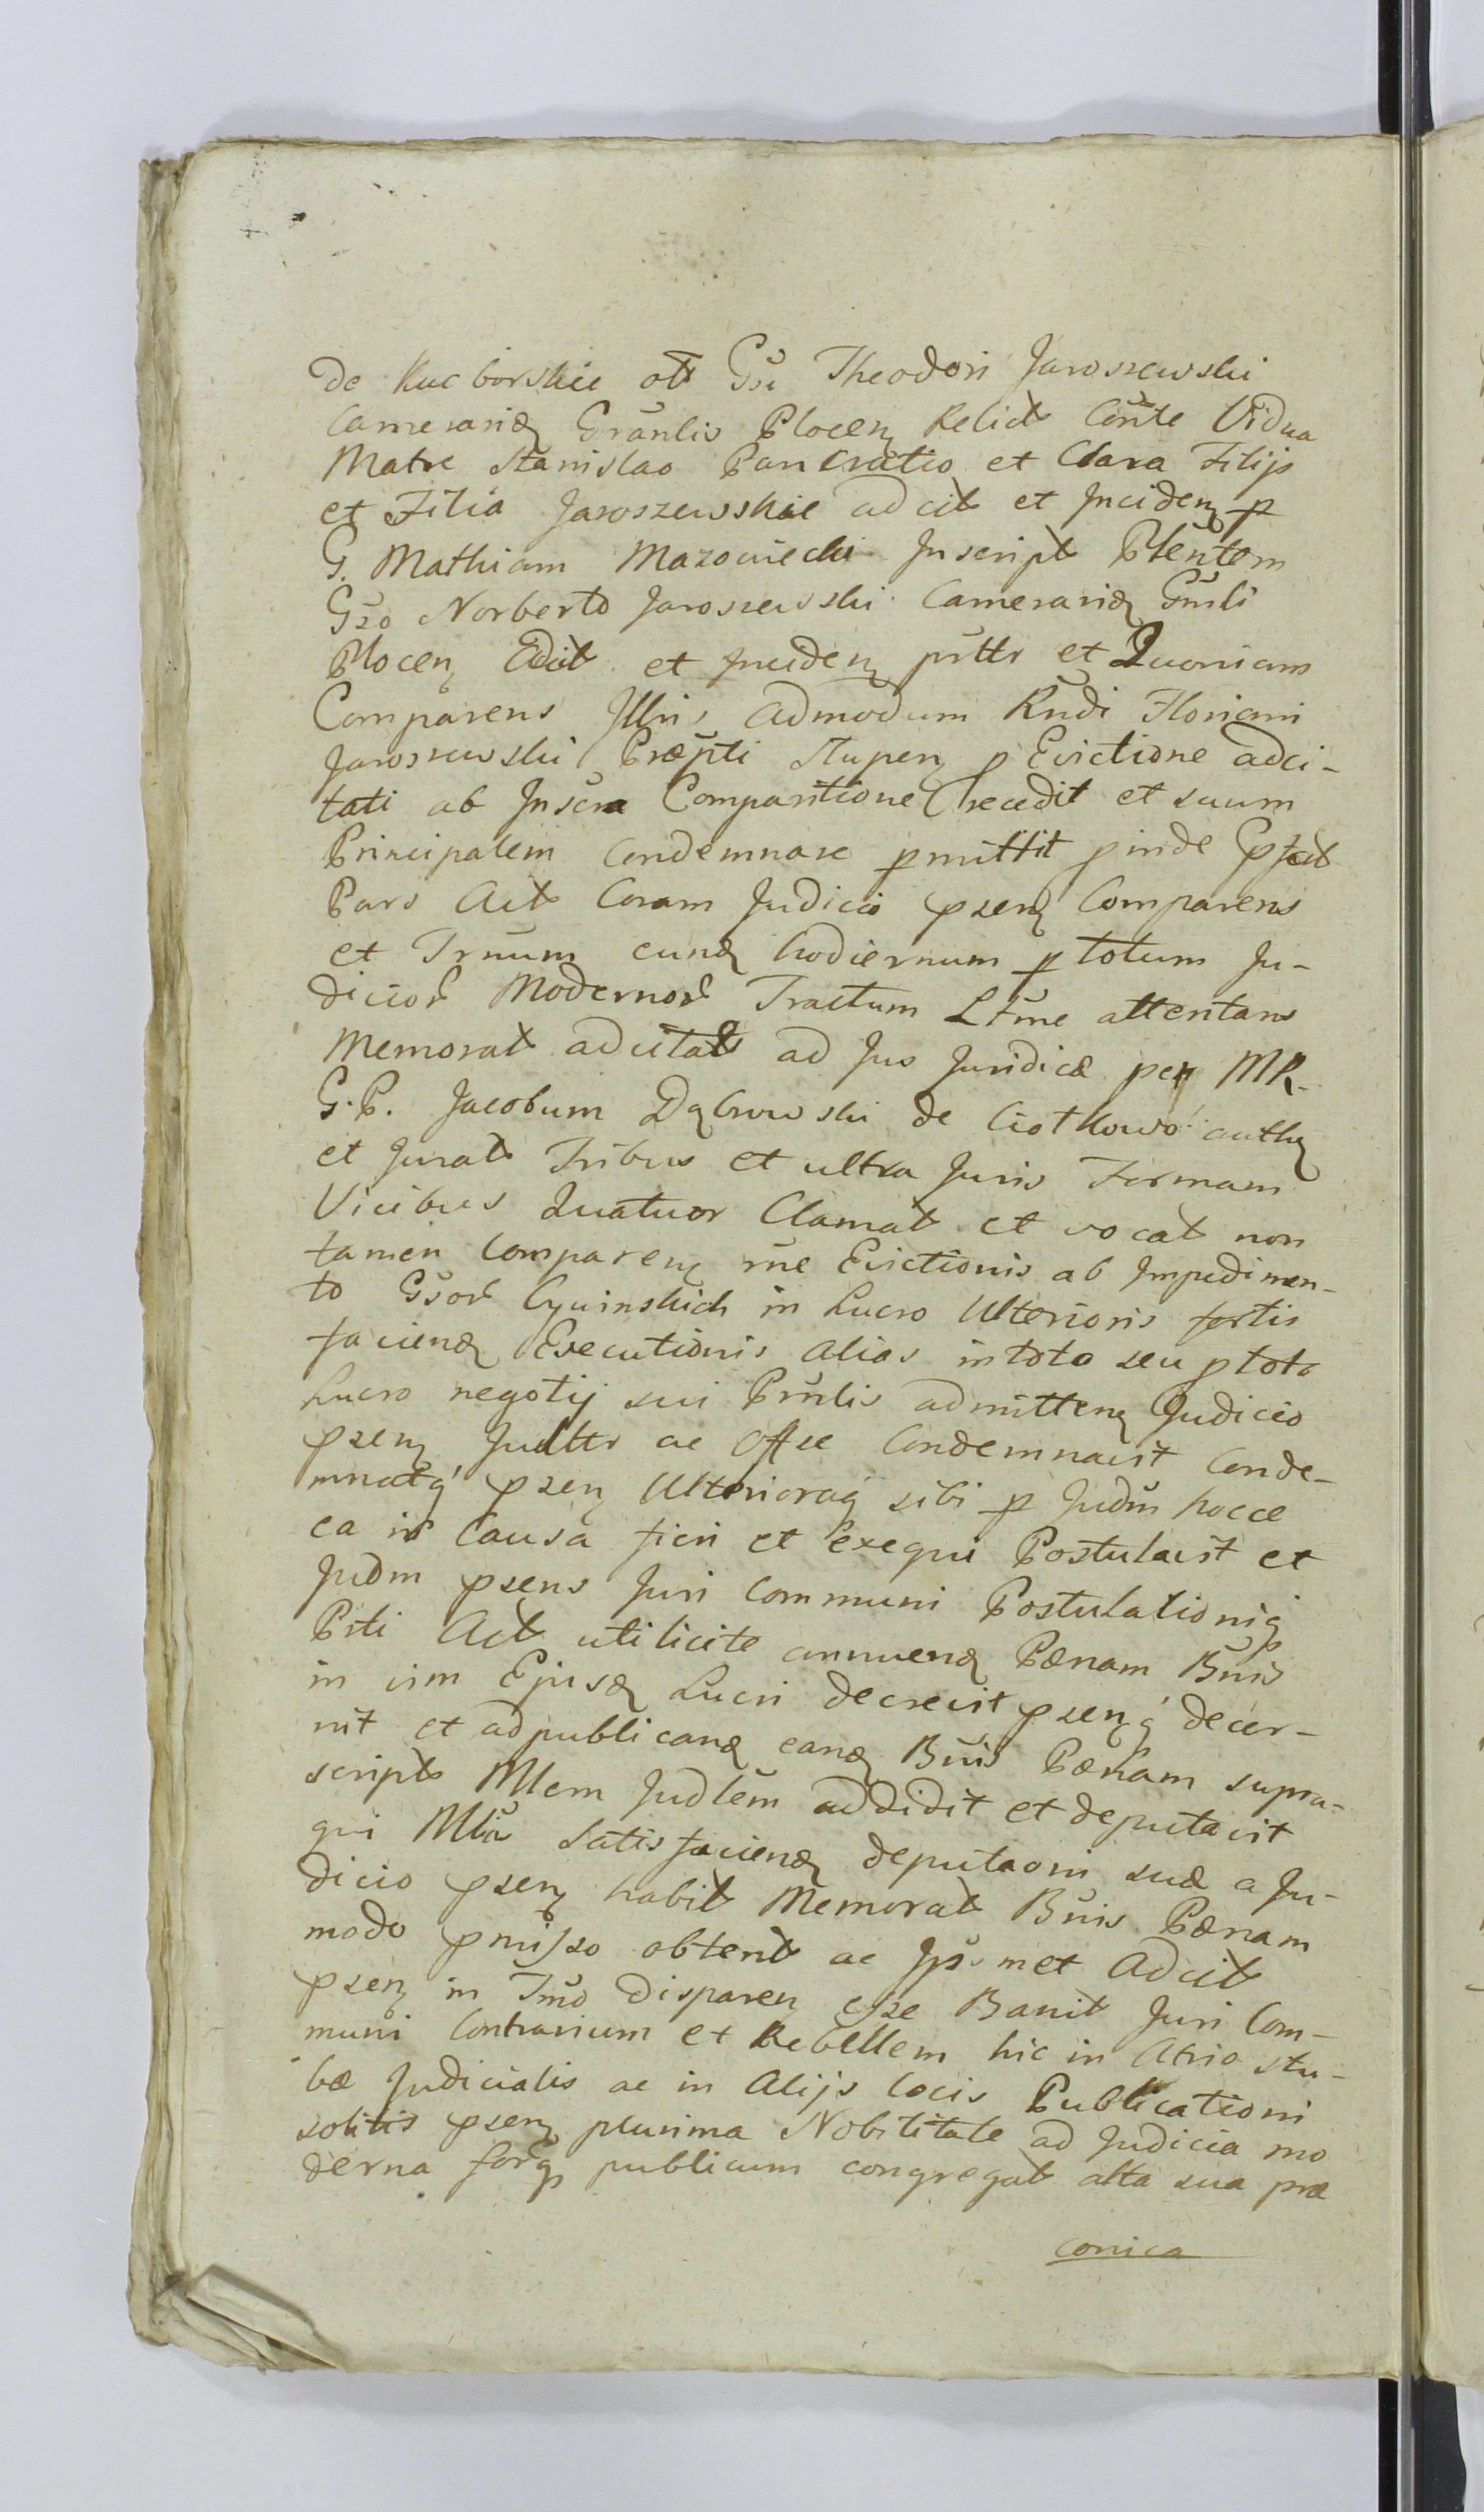 de Kucborskie ol Gsi Theodori Jaroszewski
Camerarid Granlis Plocen Relict Conte Vidua
Matre Stanislao Pancratio et Clara Filijs
et Filia Jaroszewskie adcit et Inciden p
G. Mathiam Mazowiecki Inscript Plentem
Gso Norberto Jaroszewski Camerarid Grnli
Plocen Edit et Inciden prttr et Quoniam
Comparens Illris admodum Rndi Floriani
Jaroszewski Præpti Slupen p Evictione adci-
tati ab Inscra Comparitione recedit et suum
Principalem Condemnare pmittit pinde
Pars Act Coram Judicio psen Comparens
et Trnum eund hodiernum p totum Ju-
dicior Modernor Tractum Ltme attentans
Memorat adcitat ad Jus Juridice per MR
G. P. Jacobum Dąbrowski de Ciotkowo auth
et Jurat Tribus et ultra Juris Formam
Vicibus Quatuor Clamat et vocat non
tamen Comparen rne Evictionis ab Impedimen-
to Gsor Cywinskich in Lucro Ulterioris fortis
faciend Executionis alias in toto seu p toto
Lucro negotij sui Prnlis admitten Judicio
psen Judltr ac Offse Condemnavit Conde-
mnatq psen Ulterioraq sibi p Judm hocce
ea in Causa fieri et exequi Postulavit et
Judm psens Juri Communi Postulationiq
Prti Act uti licite annuend Pænam Bnis
in vim Ejusd Lucri decrevit psenq decer-
nit et adpublicand eand Bnis Pænam supra-
script Mlem Judlem addidit et deputavit
qui Mlis Satisfaciend deputaoni suæ a Ju-
dicio psen habit Memorat Bnis Pænam
modo pmisso obtent ac Ipsmet Adcit
psen in Tmo disparen esse Banit Juri Com-
muni Contrarium et Rebellem hic in Atrio stu-
bæ Judicialis ac in Alijs locis Publicationi
solitis psen plurima Nobilitate ad Judicia mo
derna forq publicum congregat alta sua præ
conica